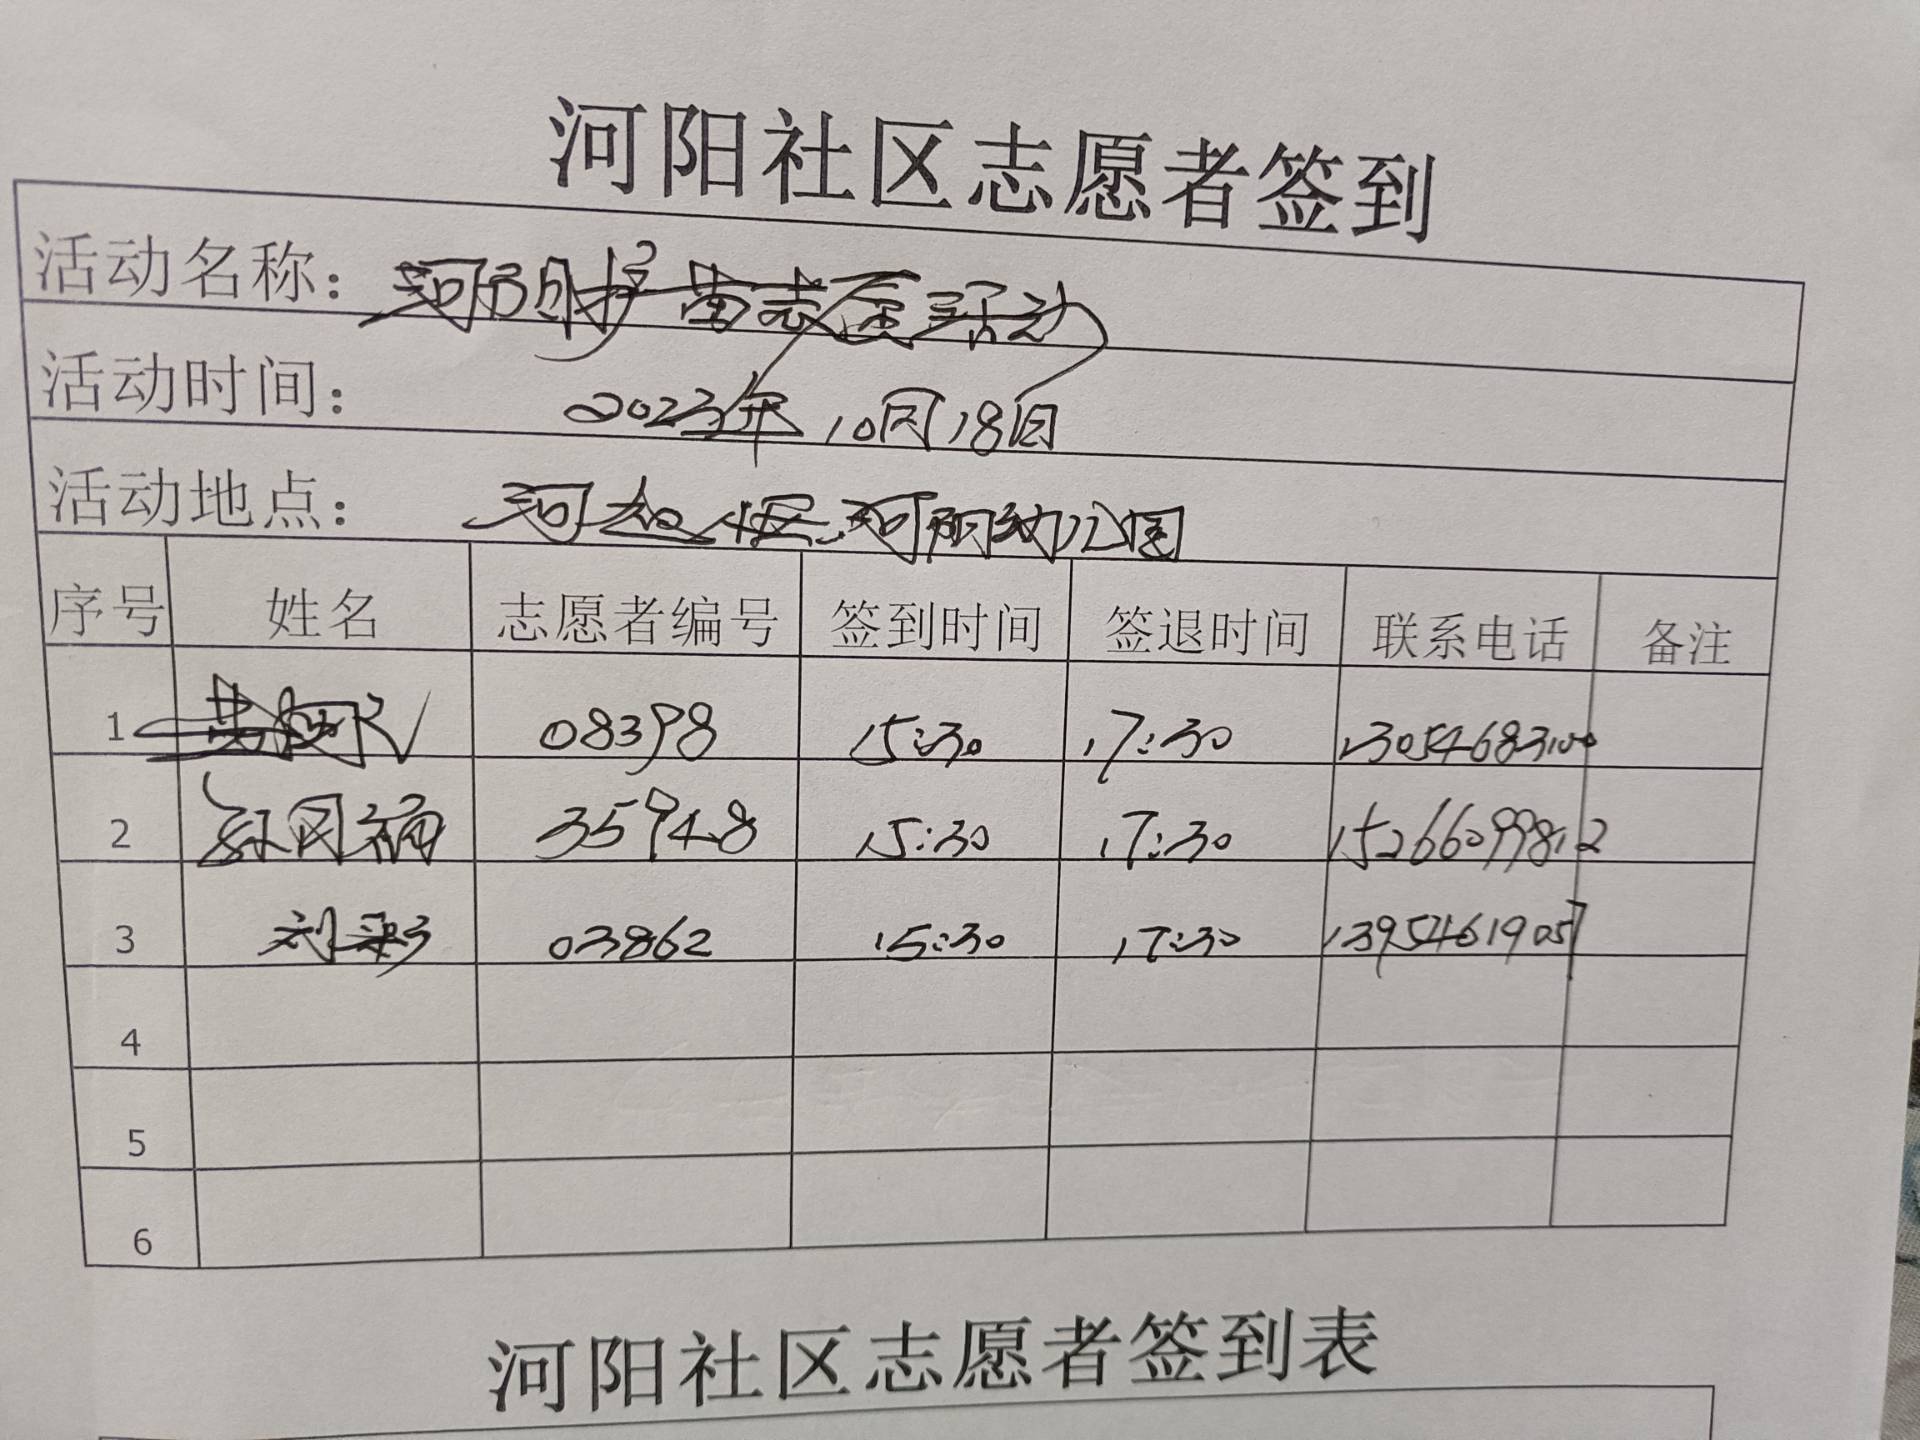 河阳社区志愿者签到
活动名称：河阳护苗志愿活动
活动时间：2023年10月18日
活动地点：河阳幼儿园
序号 姓名 志愿者编号 签到时间 签退时间 联系电话 备注
1 08398 15:30 17:30 13054683100
2 35948 15:30 17:30 15266099812
3 刘彩 03862 15:30 17:30 13954619057
4
5
6
河阳社区志愿者签到表